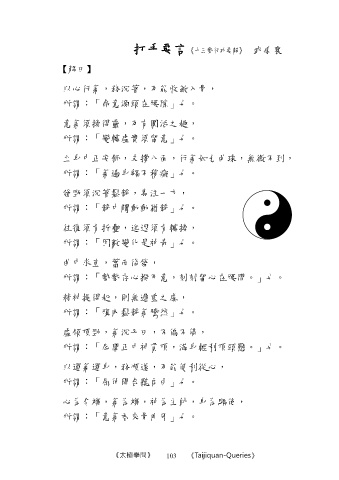 打手要言《十三勢行功要解》 武禹襄
【解曰】
以心行氣,務沉著,乃能收斂入骨,
所謂:「命意源頭在腰隙」也。
意氣須換得靈,乃有圓活之趣,
所謂:「變轉虛實須留意」也。
立身中正安舒,支撐八面,行氣如九曲珠,無微不到,
所謂:「氣遍身軀不稍癡」也。
發勁須沉著鬆靜,專注一方,
所謂:「靜中觸動動猶靜」也。
往復須有折疊,進退須有轉換,
所謂:「因敵變化是神奇」也。
曲中求直,蓄而後發,
所謂:「勢勢存心揆用意,刻刻留心在腰間。」也。
精神提得起,則無遲重之虞,
所謂:「腹內鬆靜氣騰然」也。
虛領頂勁,氣沉丹田,不偏不倚,
所謂:「尾閭正中神貫頂,滿身輕利頂頭懸。」也。
以運氣運身,務順遂,乃能便利從心,
所謂:「屈伸開合聽自由」也。
心為令,氣為旗,神為主帥,身為驅使,
所謂:「意氣君來骨肉臣」也。
《太極拳問》 103 《Taijiquan-Queries》